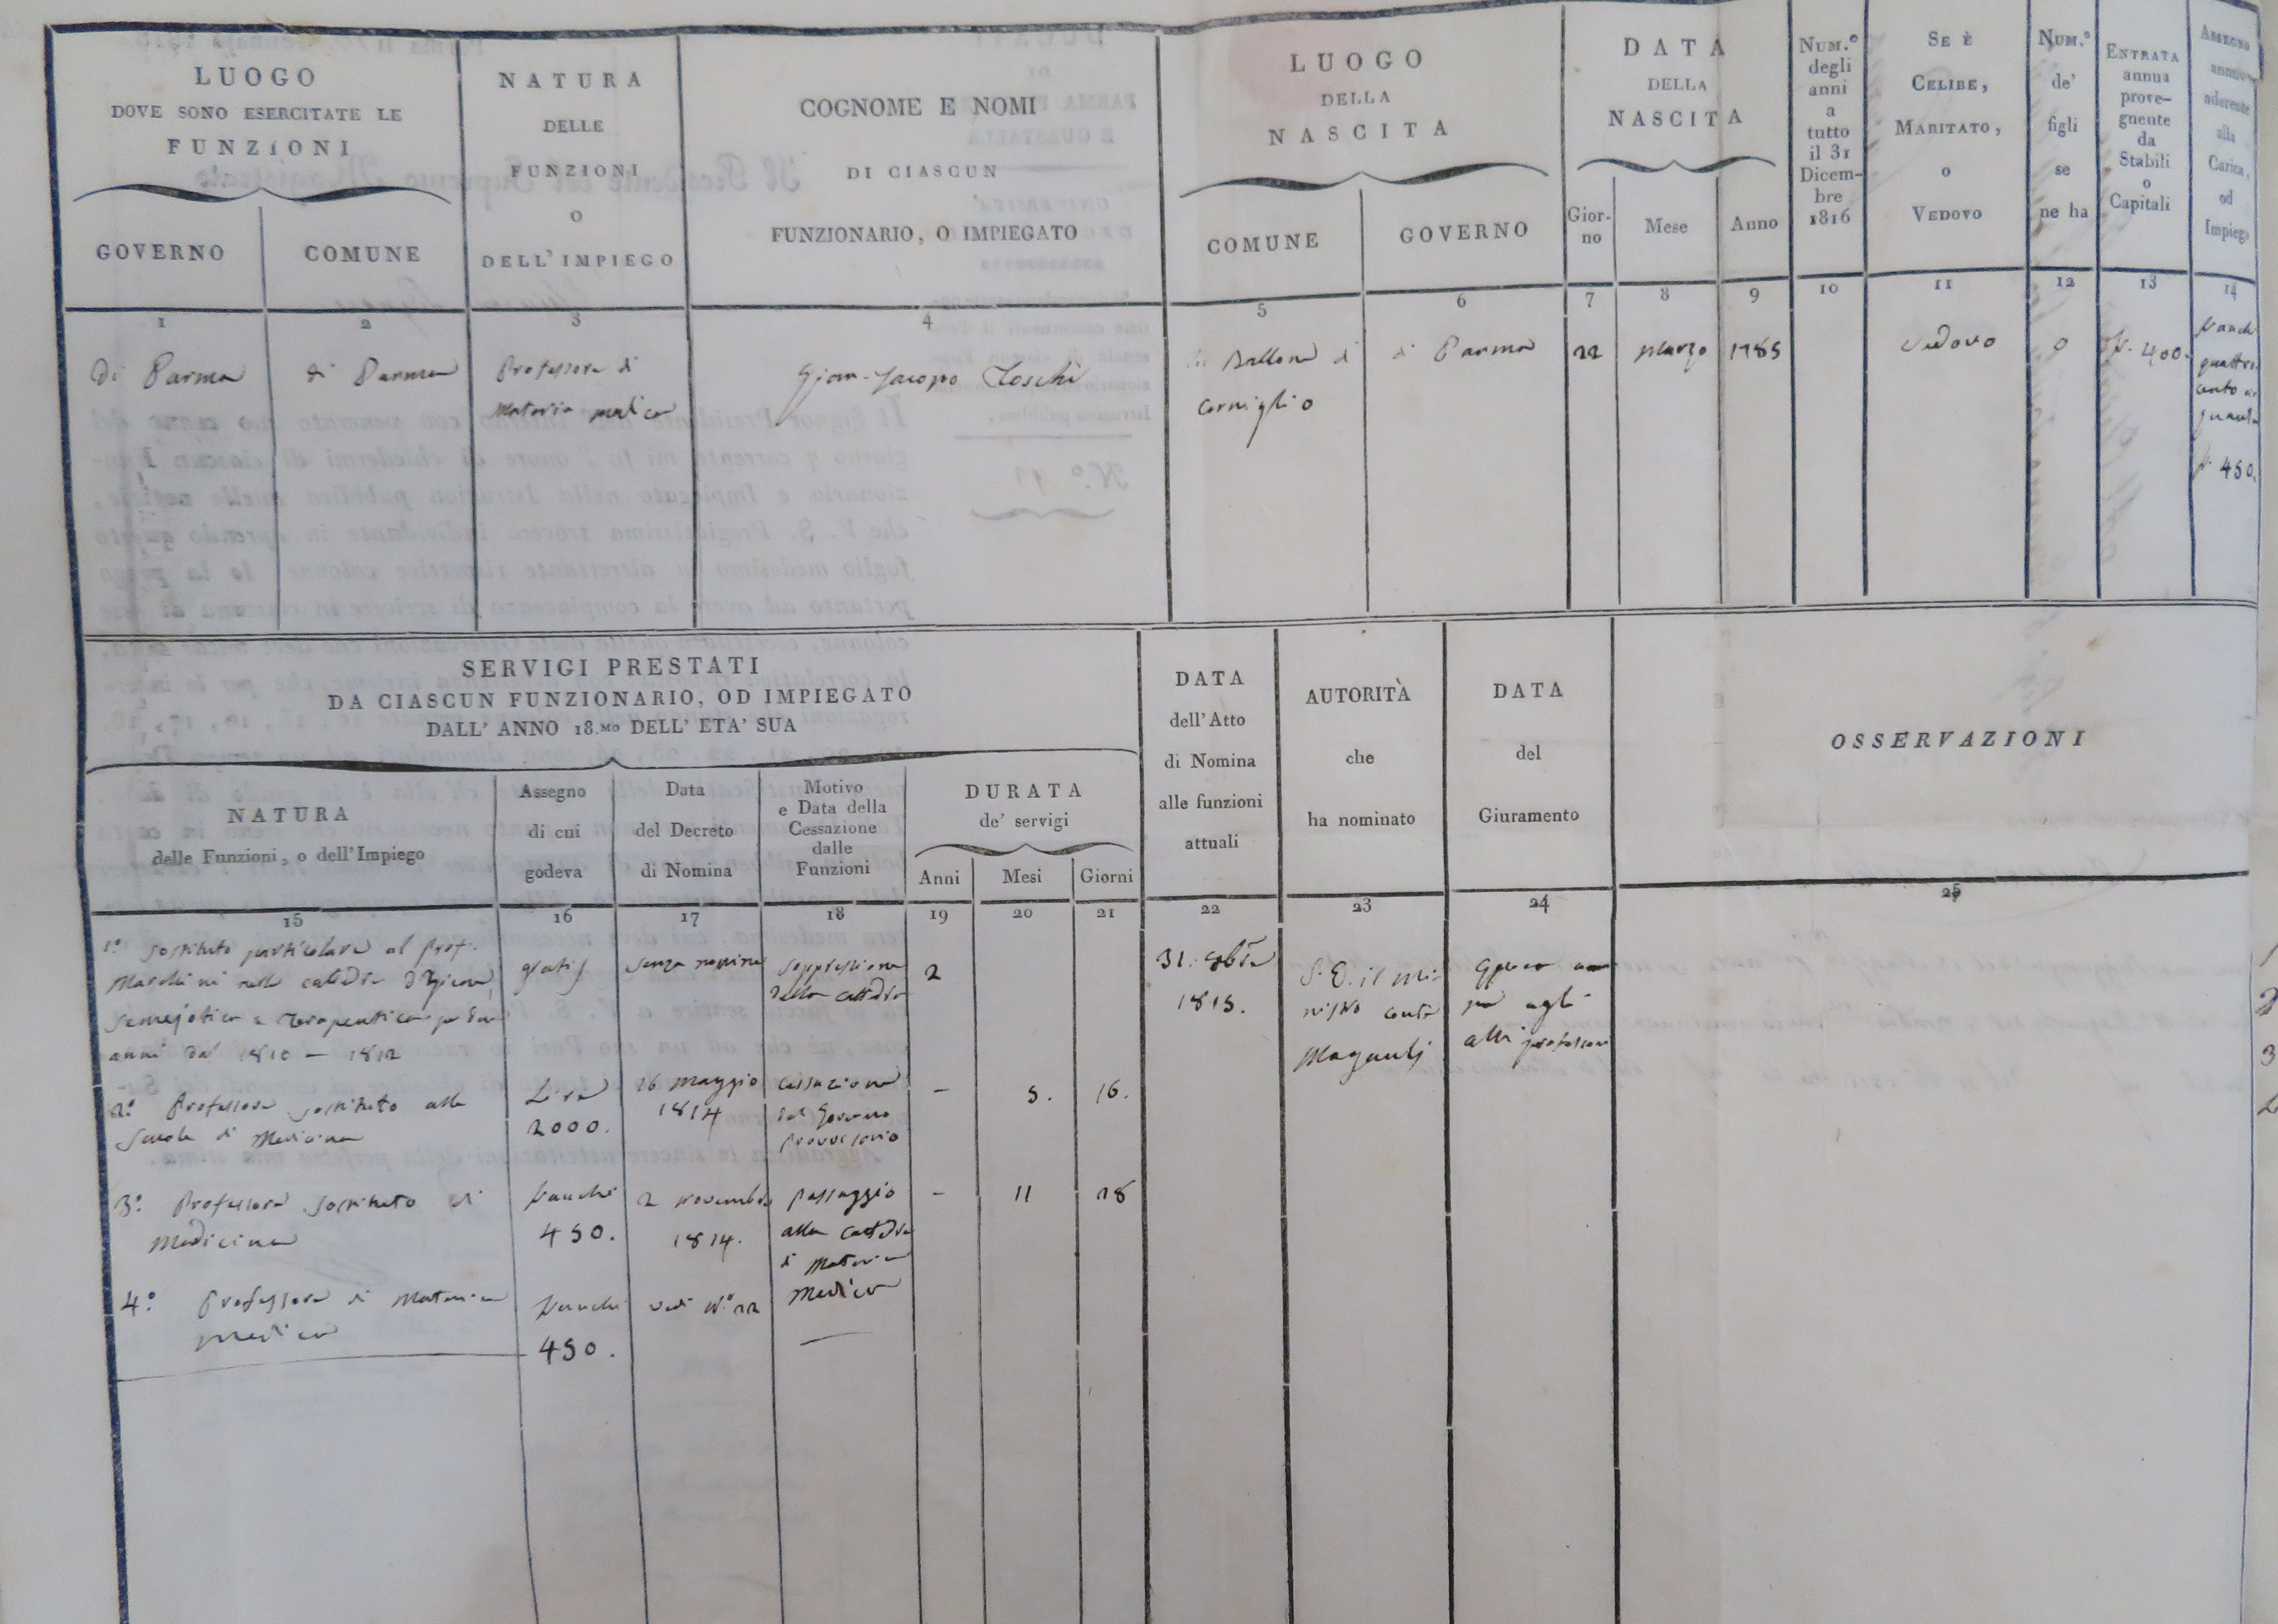 LUOGO
DOVE SONO ESERCITATE LE
FUNZIONI
GOVERNO
COMUNE
NATURA
DELLE
FUNZIONI
O
DELL' IMPIEGO
COGNOME E NOMI
DI CIASCUN
FUNZIONARIO, O IMPIEGATO
LUOGO
DELLA
NASCITA
COMUNE
GOVERNO
DATA
DELLA
NASCITA
Gior-
no
Mese
Anno
NUM.º
degli
anni
a
tutto
il 31
Dicem-
bre
1816
SE È
CELIBE,
MARITATO,
o
VEDOVO
NUM.º
de'
figli
se
ne ha
ENTRATA
annua
prove-
gnente
da
Stabili
o
Capitali
ASSEGNO
annuo
aderente
alla
Carica,
od
Impiego
1
2
3
4
5
6
7
8
9
10
11
12
13
14
di Parma
di Parma
Professore di
Materia medica
Gian-Jacopo Toschi
Ballone di
Corniglio
di Parma
22
Marzo
1785
Vedovo
0
fr. 400.
franchi
quattro
cento cin
quanta
fr. 450.
SERVIGI PRESTATI
DA CIASCUN FUNZIONARIO, OD IMPIEGATO
DALL' ANNO 18.MO DELL' ETA' SUA
NATURA
delle Funzioni, o dell'Impiego
Assegno
di cui
godeva
Data
del Decreto
di Nomina
Motivo
e Data della
Cessazione
dalle
Funzioni
DURATA
de' servigi
Anni
Mesi
Giorni
DATA
dell'Atto
di Nomina
alle funzioni
attuali
AUTORITÀ
che
ha nominato
DATA
del
Giuramento
OSSERVAZIONI
15
16
17
18
19
20
21
22
23
24
25
1º Sostituto particolare al Prof.
nella cattedra d'Igiene,
Semejotica e Terapeutica per due
anni dal 1810 — 1812
gratis
senza nomina
soppressione
della cattedra
2
31. 8bre
1815.
S. E. il Mi-
nistro Conte
Magauly
agli
altri professori
2º Professore sostituto alla
Scuola di Medicina
Lire
2000.
16 Maggio
1814
Cessazione
del Governo
provvisorio
—
5.
16.
3º Professore sostituto di
Medicina
franchi
450.
2 Novembre
1814.
passaggio
alla Cattedra
di Materia
Medica
—
11
28
4º Professore di Materia
medica
franchi
450.
vedi Nº 22
—